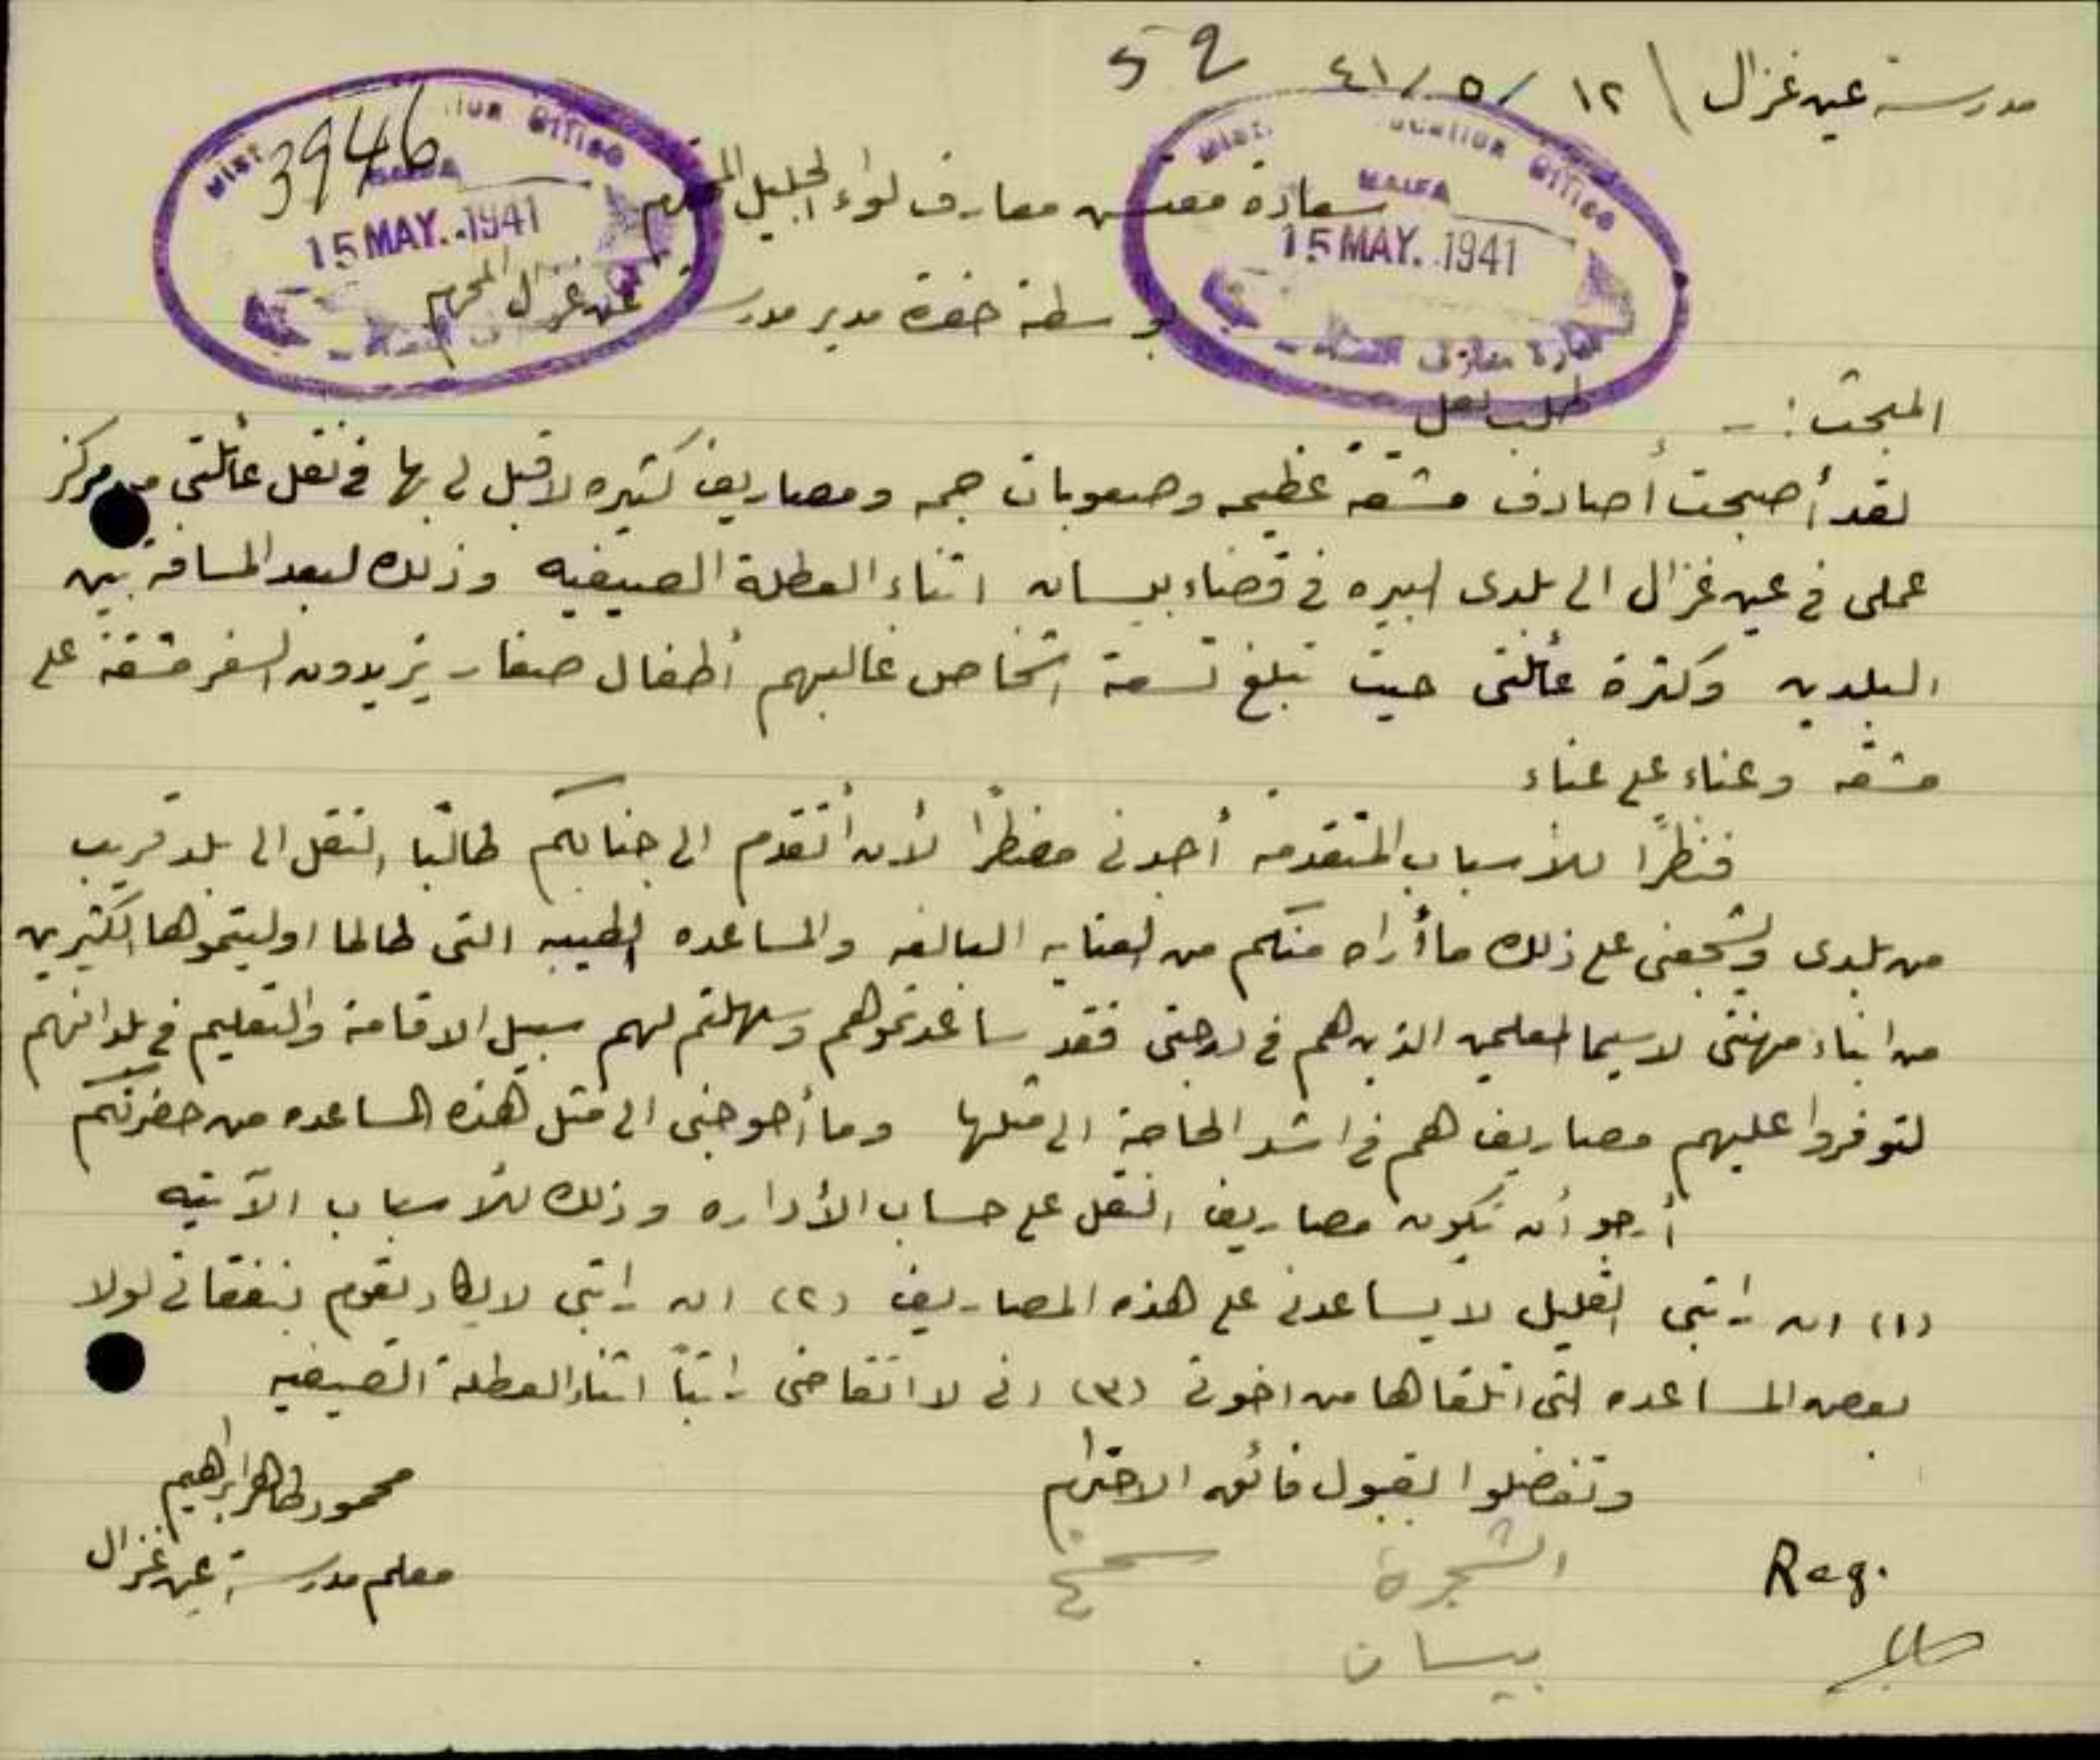 مدرسة عين غزال \ ١٢ / ٥ / ٤١
52
3946
Education Office
HAIFA
15 MAY. 1941
Dist. Education Office
HAIFA
15 MAY. 1941
سعادة مفتش معارف لواء الجليل المحترم
بواسطة حضرة مدير مدرسة عين غزال المحترم
المبحث :- طلب نقل
لقد أصبحت أصادف مشقه عظيمه وصعوبات جمه ومصاريف كثيره لا قبل لي بها في نقل عائلتي من مركز
عملي في عين غزال الى بلدي البيره في قضاء بيسان اثناء العطلة الصيفيه وذلك لبعد المسافه بين
البلدين وكثرة عائلتي حيث تبلغ تسعة اشخاص غالبهم أطفال صغار يزيدون السفر مشقة على
مشقه وعناء على عناء
فنظراً للأسباب المتقدمه أجدني مضطراً لأن أتقدم الى جنابكم طالبًا النقل الى بلد قريب
من بلدي ويشجعني على ذلك ما أراه منكم من العنايه البالغه والمساعده الطيبه التي طالما اوليتموها الكثيرين
من ابناء مهنتي لا سيما المعلمين الذين هم في درجتي فقد ساعدتموهم وسهلتم لهم سبيل الاقامة والتعليم في بلدانهم
لتوفروا عليهم مصاريف هم في اشد الحاجة الى مثلها وما أحوجني الى مثل هذه المساعده من حضرتكم
أرجو أن تكون مصاريف النقل على حساب الأداره وذلك للأسباب الآتيه
(١) ان راتبي القليل لا يساعدني على هذه المصاريف (٢) ان راتبي لا يكاد يقوم بنفقاتي لولا
بعض المساعده التي اتلقاها من اخوتي (٣) اني لا اتقاضى راتباً اثناء العطلة الصيفيه
وتفضلوا بقبول فائق الاحترام
محمود طاهر ابراهيم
معلم مدرسة عين غزال
الشجرة
سمخ
بيسان
Reg.